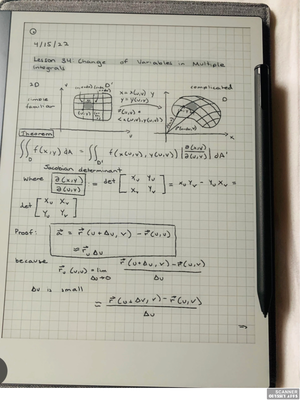 4/15/22
Lesson 34: Change of Variables in Multiple
integrals
2D
simple
familiar
D'
x = x(u,v)
y = y(u,v)
complicated
D
Theorem
∬_D f(x,y) dA = ∬_D' f(x(u,v), y(u,v)) |∂(x,y)/∂(u,v)| dA'
Jacobian determinant
where ∂(x,y)/∂(u,v) = det [x_u y_u x_v y_v] = x_u y_v - y_u x_v =
det [x_u x_v y_u y_v]
Proof: a⃗ = r⃗(u+Δu, v) - r⃗(u,v)
≈ r⃗_u Δu
because
r⃗_u(u,v) = lim Δu→0 r⃗(u+Δu,v) - r⃗(u,v) / Δu
Δu is small
≈ r⃗(u+Δu,v) - r⃗(u,v) / Δu
SCANNED